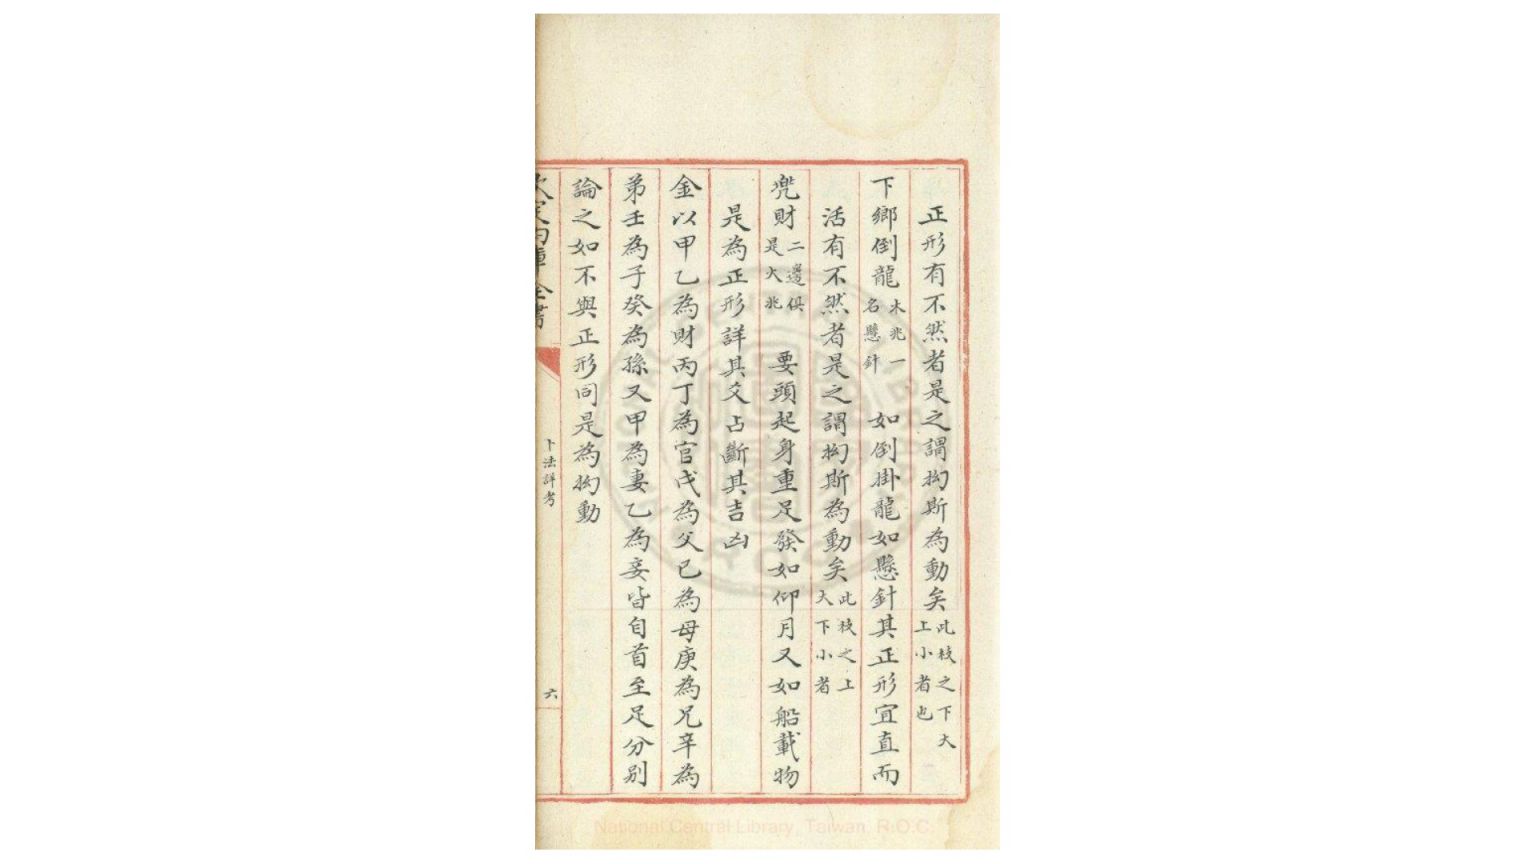 正形有不然者是之謂拗斯為動矣此枝之下大上小者也
下鄉倒龍木兆一名懸針如倒掛龍如懸針其正形宜直而
活有不然者是之謂拗斯為動矣此枝之上大下小者
兠財二邊俱是火兆要頭起身重足發如仰月又如船載物
是為正形詳其爻占斷其吉凶
金以甲乙為財丙丁為官戊為父已為母庚為兄辛為
弟壬為子癸為孫又甲為妻乙為妾皆自首至足分别
論之如不與正形同是為拗動
欽定四庫全書
卜法詳考
六
National Central Library, Taiwan, R.O.C.